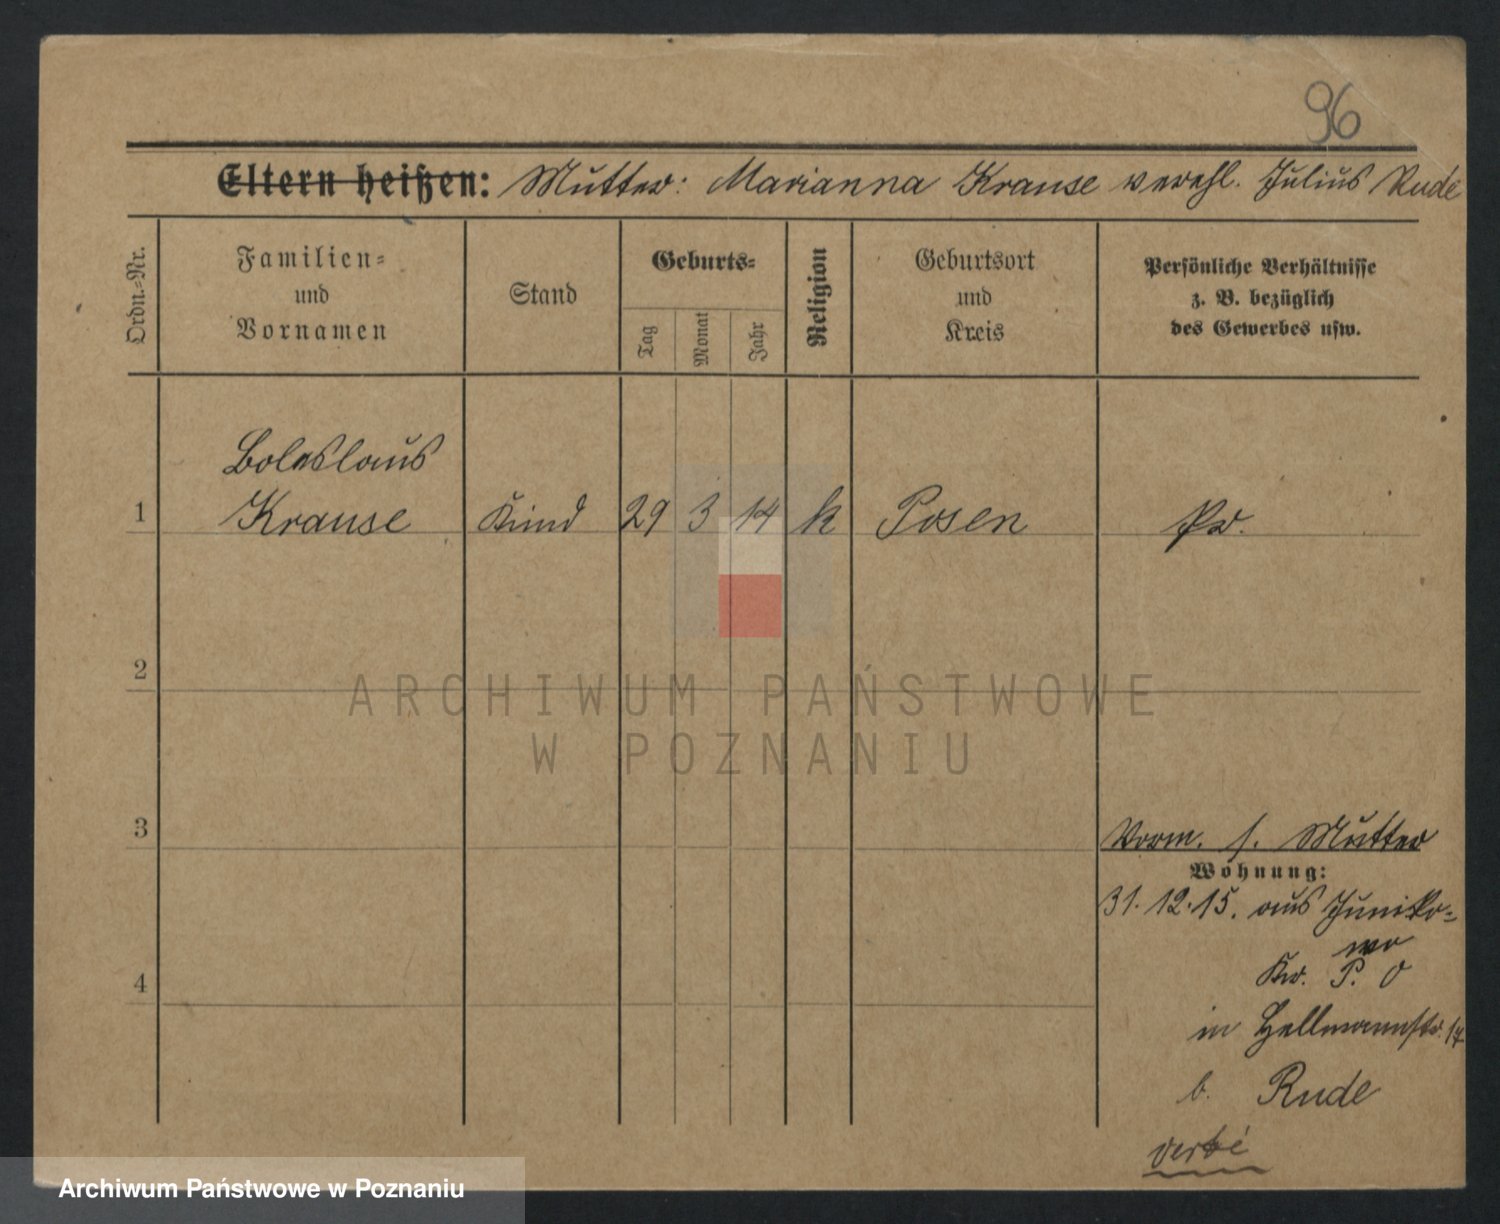 96
Eltern heißen: Mutter: Marianna Krause verehl. Julius Rude
Ordn.-Nr.
Familien-
und
Vornamen
Stand
Geburts-
Tag
Monat
Jahr
Religion
Geburtsort
und
Kreis
Persönliche Verhältnisse
z. B. bezüglich
des Gewerbes usw.
Boleslaus
1 Krause Kind 29 3 14 k Posen Pr.
2
ARCHIWUM PAŃSTWOWE
W POZNANIU
3
Vorm. s. Mutter
Wohnung:
31.12.15. aus Juniko-
wo
4
Kr. P. O
in Hellmannstr. 17
b. Rude
Archiwum Państwowe w Poznaniu